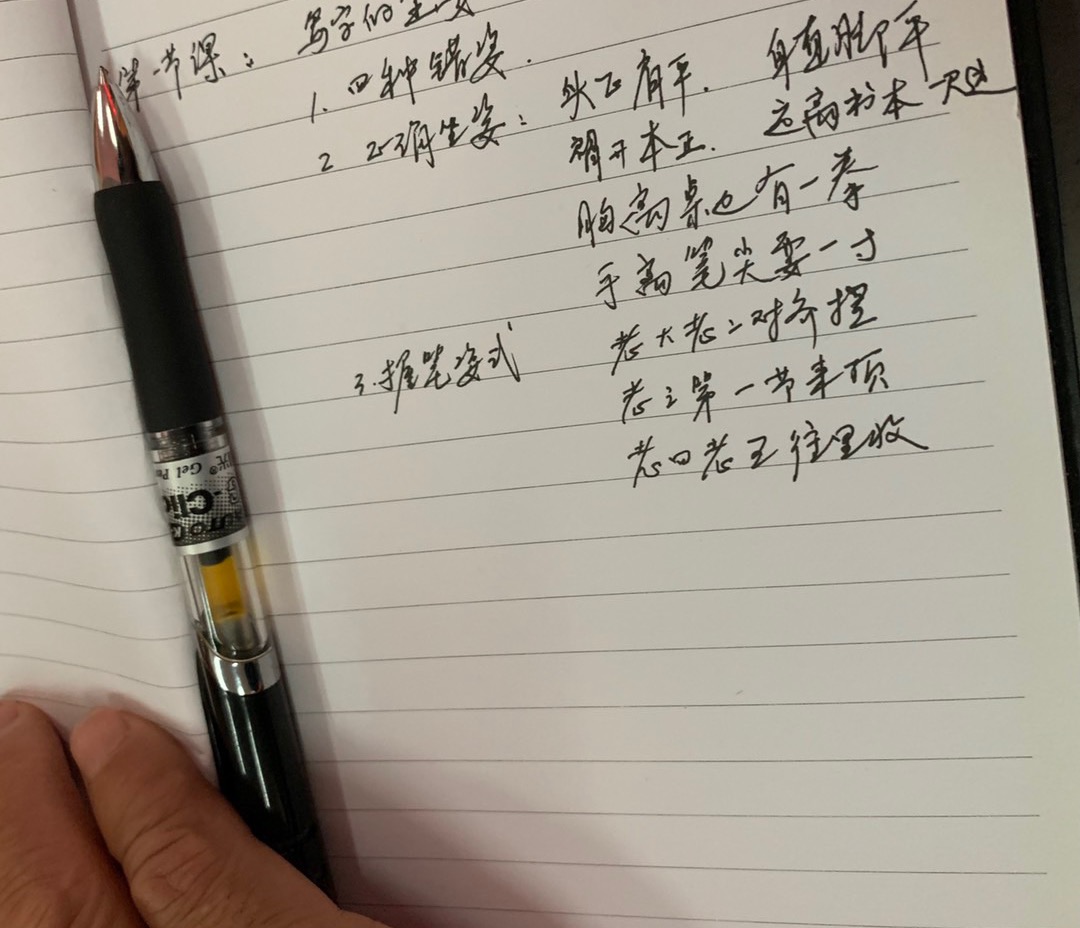 第一节课：写字的坐姿
1. 四种错姿.
2 正确坐姿：头正肩平. 身直脚平
胸开本正. 远离书本一尺
胸离桌边有一拳
手离笔尖要一寸
3.握笔姿式
老大老二对齐捏
老三第一节来顶
老四老五往里收
Gel Pen